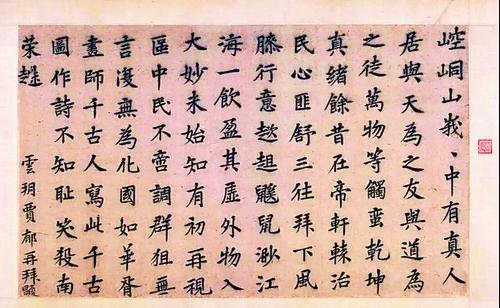 崆峒山峩〻中有真人
居與天為之友與道為
之徒萬物等觸蠻乾坤
真緒餘昔在帝軒轅治
民心匪舒三往拜下風
膝行意趑趄鼴鼠渺江
海一飲盈其虛外物入
大妙未始知有初再視
區中民不啻調群狙無
言復無為化國如華胥
畫師千古人寫此千古
圖作詩不知恥笑殺南
荣趎
雲玥賈郁再拜題